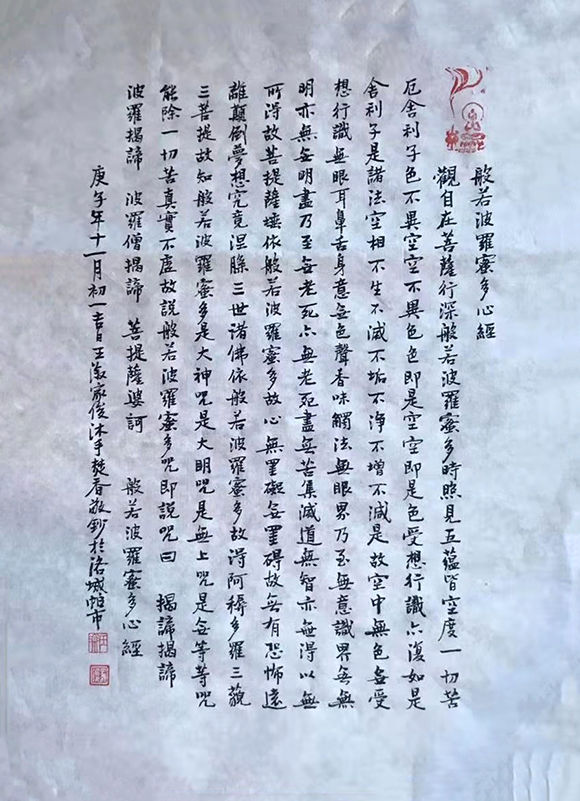 般若波羅蜜多心經
觀自在菩薩行深般若波羅蜜多時照見五蘊皆空度一切苦
厄舍利子色不異空空不異色色即是空空即是色受想行識亦復如是
舍利子是諸法空相不生不滅不垢不淨不增不減是故空中無色無受
想行識無眼耳鼻舌身意無色聲香味觸法無眼界乃至無意識界無無
明亦無無明盡乃至無老死亦無老死盡無苦集滅道無智亦無得以無
所得故菩提薩埵依般若波羅蜜多故心無罣礙無罣碍故無有恐怖遠
離顛倒夢想究竟涅槃三世諸佛依般若波羅蜜多故得阿耨多羅三藐
三菩提故知般若波羅蜜多是大神咒是大明咒是無上咒是無等等咒
能除一切苦真實不虛故說般若波羅蜜多咒即說咒曰 揭諦揭諦
波羅揭諦 波羅僧揭諦 菩提薩婆訶 般若波羅蜜多心經
庚午年十一月初一吉日王家俊沐手焚香敬鈔於洛城帕市